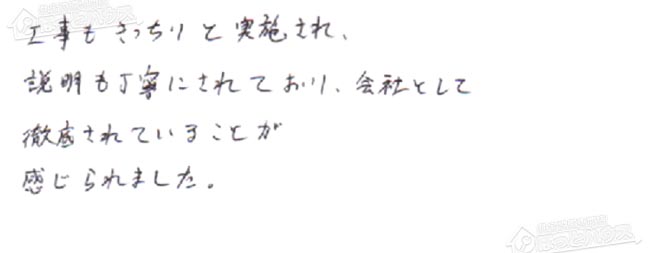 工事もきっちりと実施され、
説明も丁寧にされており、会社として
徹底されていることが
感じられました。